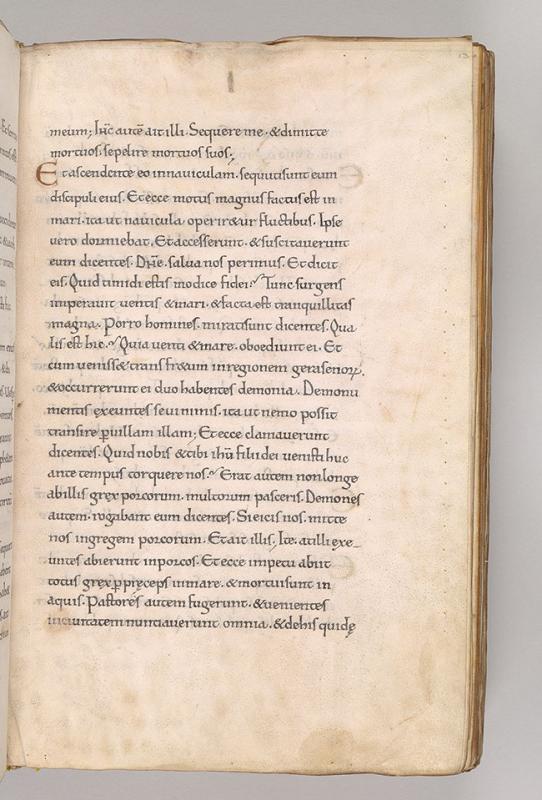 meum; ihc̄ autē ait illi. Sequere me. &dimitte
mortuos. sepelire mortuos suos;
Et ascendente eo innaviculam. sequutisunt eum
discipuli eius. Et ecce motus magnus factus est in
mari. ita ut navicula. operir&ur fluctibus. Ipse
vero dormiebat. Et accesserunt. &suscitaverunt
eum dicentes. Dn̄e. salva nos perimus. Et dicit
eis. Quid timidi estis modice fidei. Tunc surgens
imperavit ventis &mari. &facta est tranquillitas
magna. Porro homines. miratisunt dicentes. Qua
lis est hic. Quia venti &mare. oboediunt ei. Et
cum veniss& trans fr&um inregionem gerasenorꝝ.
&occurrerunt ei duo habentes demonia. Demonu
mentis exeuntes sevi nimis. ita ut nemo possit
transire ꝑviam illam; Et ecce clamaverunt
dicentes. Quid nobis &tibi ihū fili dei venisti huc
ante tempus torquere nos. Erat autem nonlonge
abillis grex porcorum. multorum pascens. Demones
autem. rogabant eum dicentes. Si eicis nos. mitte
nos ingregem porcorum. Et ait illis. Ite. at illi exe
untes abierunt inporcos. Et ecce impetu abiit
totus grex ꝑ pręceps inmare. &mortuisunt in
aquis. Pastores autem fugerunt. &venientes
incivitatem nuntiaverunt omnia. &dehis quidę